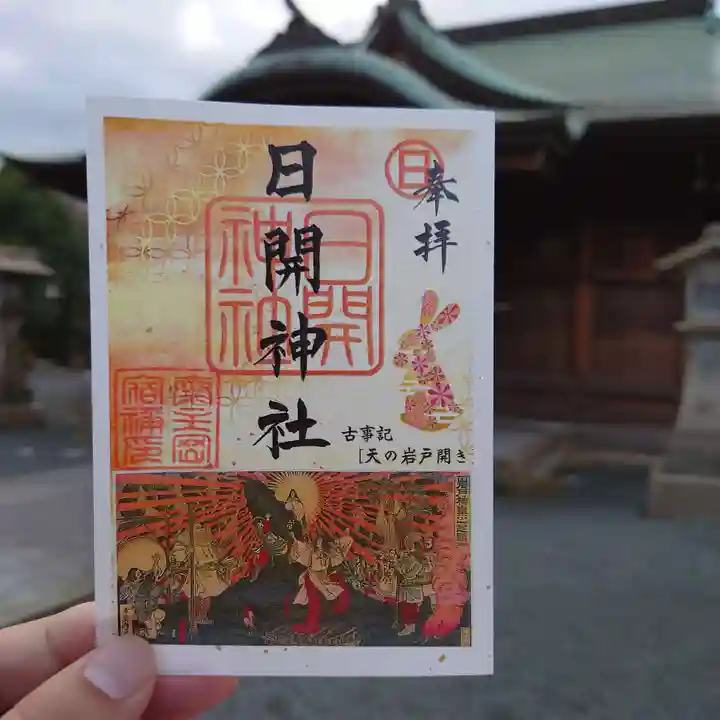 日
奉拝
日開神社
日開
神社
古事記
[天の岩戸開き